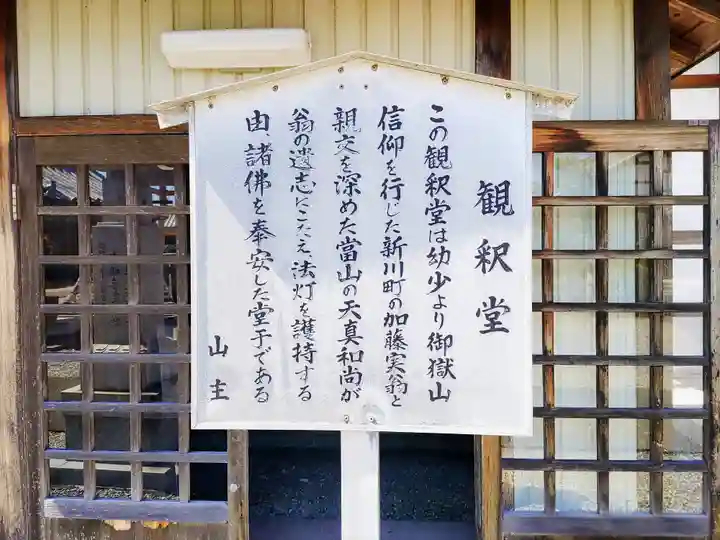 観釈堂
この観釈堂は幼少より御嶽山
信仰を行じた新川町の加藤実翁と
親交を深めた當山の天真和尚が
翁の遺志にこたえ、法灯を護持する
由、諸佛を奉安した堂于である
山主